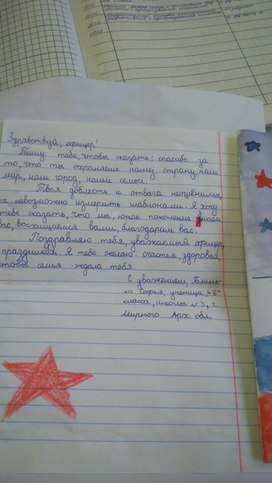 Здравствуй, офицер!
Пишу тебе, чтобы сказать: спасибо за
то, что ты охраняешь нашу страну, наш
мир, наш город, наши семьи.
Твоя доблесть и отвага неоценимы,
их невозможно измерить шаблонами. Я хочу
тебе сказать, что мы, юное поколение,
вас, восхищаемся вами, благодарим вас.
Поздравляю тебя, уважаемый офицер,
праздником. Я тебе желаю: счастья, здоровья,
чтобы семья ждала тебя.
С уважением,
ко Софья, ученица 4 "Б"
класса, школы №3, г.
Мирного Арх. обл.